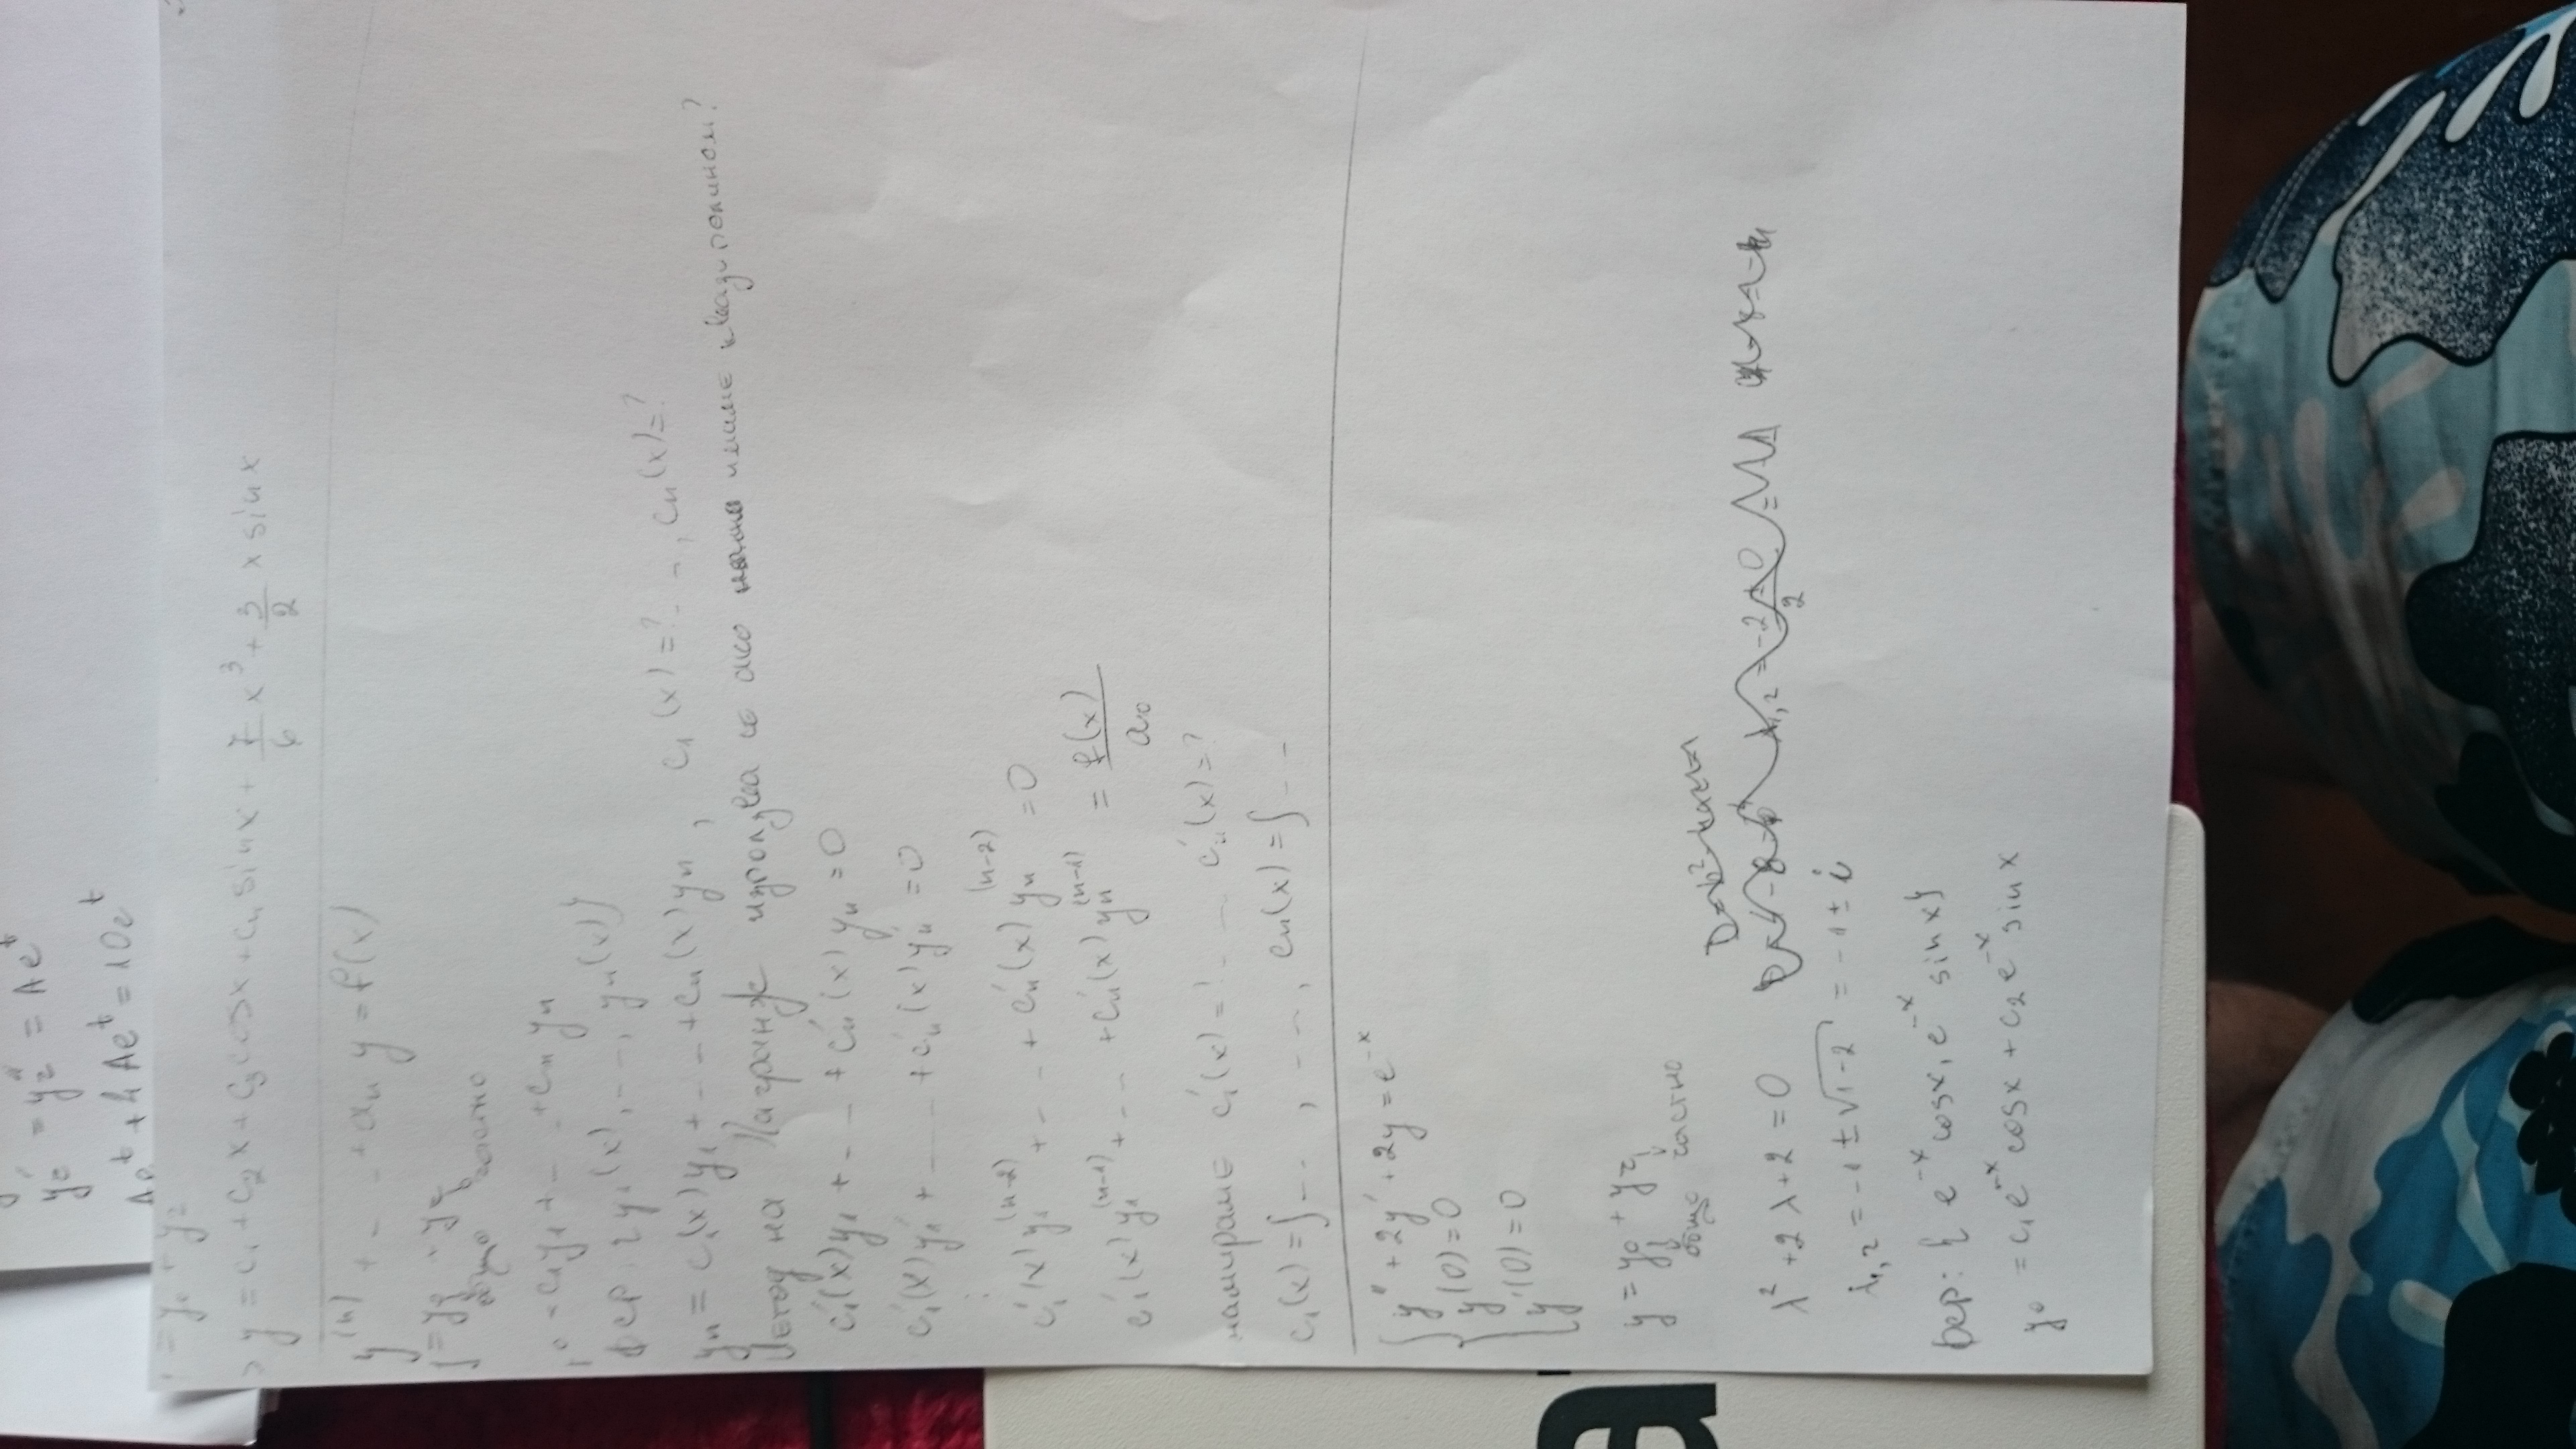 y₀' = y₂'' = Ae^t
Ae^t + 4Ae^t = 10e^t
= y₀ + y₂
y = c₁ + c₂x + c₃cosx + c₄sinx + 7/6 x³ + 5/2 x sinx
y⁽ⁿ⁾ + - - + aₙ y = f(x)
y = y₀ + y₂
общо частно
y₀ = c₁y₁ + - - + cₙ yₙ
фср: { y₁(x), - - , yₙ(x) }
yₙ = c₁(x)y₁ + - - + cₙ(x)yₙ , c₁(x)=? - - , cₙ(x)=?
Метод на Лагранж използва се ако нямаме квазиполином?
c₁'(x)y₁ + - - + cₙ'(x)yₙ = 0
c₁'(x)y₁' + - - + cₙ'(x)yₙ' = 0
⋮
c₁'(x)y₁⁽ⁿ⁻²⁾ + - - + cₙ'(x)yₙ⁽ⁿ⁻²⁾ = 0
c₁'(x)y₁⁽ⁿ⁻¹⁾ + - - + cₙ'(x)yₙ⁽ⁿ⁻¹⁾ = f(x)/a₀
намираме c₁'(x)=? - - cₙ'(x)=?
c₁(x) = ∫ - - , - - , cₙ(x) = ∫ - -
{ y'' + 2y' + 2y = e^-x
y(0) = 0
y'(0) = 0
y = y₀ + y₂
общо частно
λ² + 2λ + 2 = 0
λ₁,₂ = -1 ± √1-2 = -1 ± i
фср: { e^-x cosx, e^-x sinx }
y₀ = c₁e^-x cosx + c₂e^-x sinx